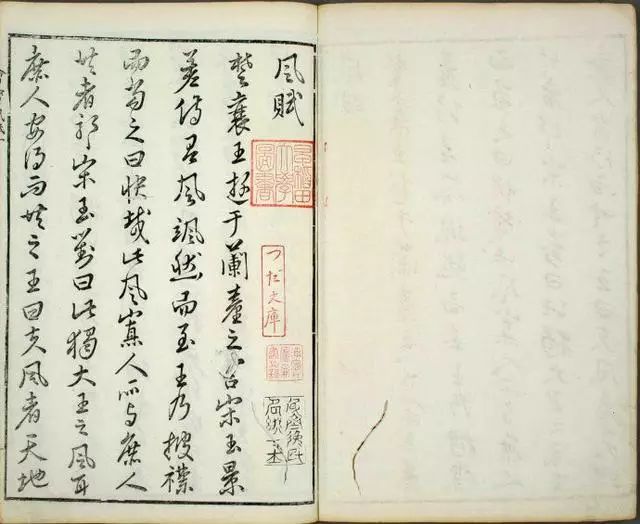 風賦
楚襄王遊于蘭臺之宮宋玉景
差侍有風颯然而至王乃披襟
而當之曰快哉此風寡人所与庶人
共者邪宋玉對曰此獨大王之風耳
庶人安得而共之王曰夫風者天地
早稲田
大學
圖書
つだ文庫